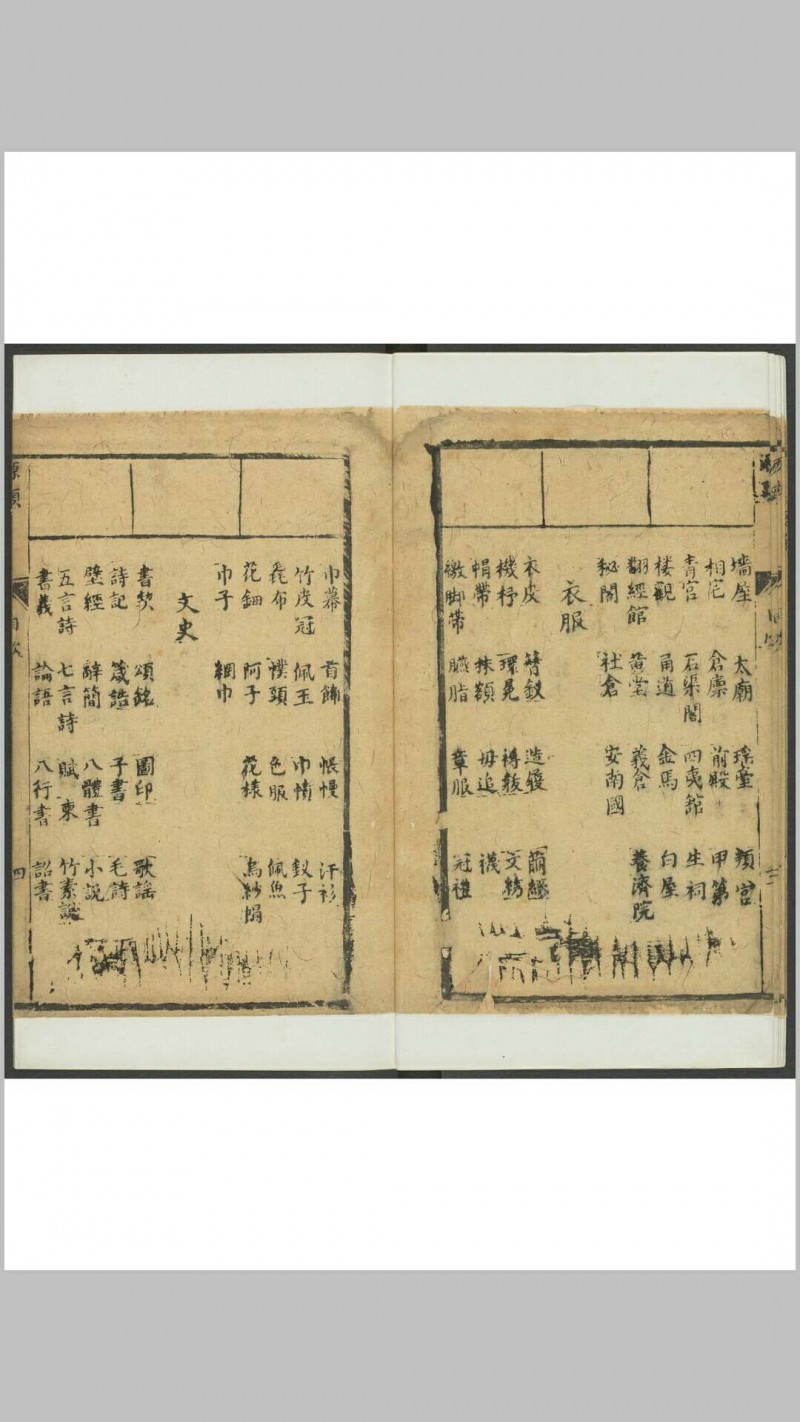 墙屋 太廟 瑤臺 頖宮
相宅 倉廪 前殿 甲第
青宮 石渠閣 四夷館 生祠
楼觀 甬道 金馬 白屋
翻經館 黄堂 義倉 養濟院
秘閣 社倉 安南國
衣服
衣皮 簪釵 造履 蠒繅
機杼 環晃 文
帽帶 抹額 毋追 襪
繳脚帶 臙脂 章服 冠禮
巾幕 首飾 帳幔 汗衫
竹皮冠 佩玉 巾幘 釵子
花布 幞頭 色服 佩魚
花鈿 阿子 花様 烏紗帽
巾子 網巾
文史
書契 頌銘 圖印 歌謡
詩記 箴誥 子書 毛詩
壁經 辭簡 八體書 小説
五言詩 七言詩 賦 東 竹素
書義 論語 八行書 詔書
四